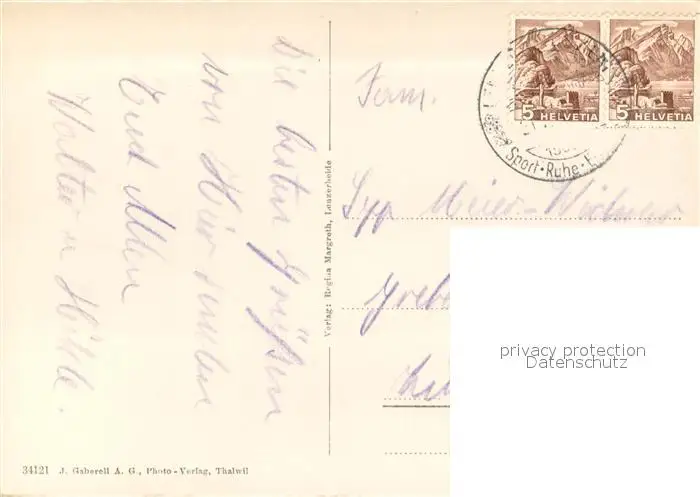 Die besten Grüssen
von Hier senden
Euch Allen
Walter u Hilde.
Verlag: Regina Margreth, Lenzerheide
34121 J. Gaberell A. G., Photo-Verlag, Thalwil
5 HELVETIA
5 HELVETIA
Sport · Ruhe ·
Fam.
Meier-
privacy protection
Datenschutz